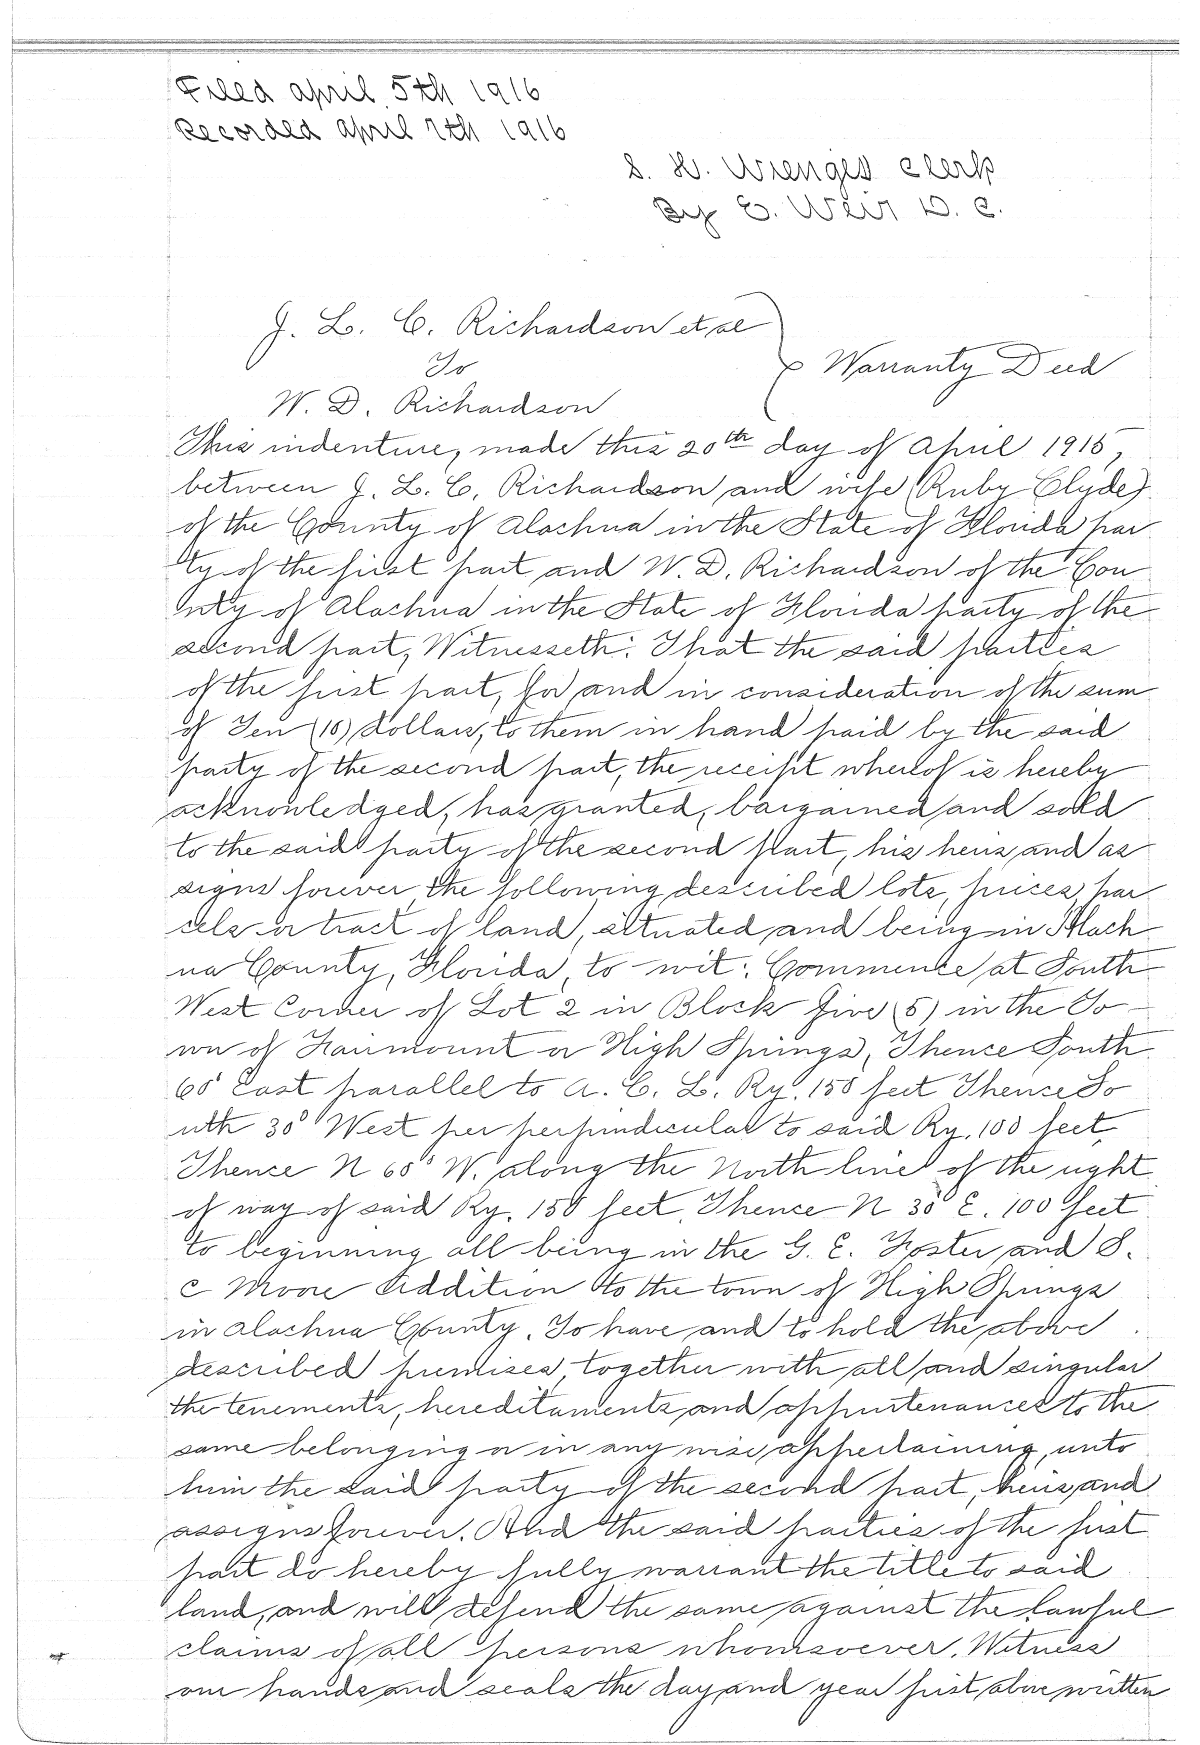 Filed april 5th 1916
Recorded april 7th 1916
S. H. Wienges Clerk
By E. Weir D. C.
J. L. C. Richardson et al
To
Warranty Deed
W. D. Richardson
This indenture, made this 20th day of April 1915,
between J. L. C. Richardson and wife (Ruby Clyde)
of the County of Alachua in the State of Florida par
ty of the first part and W. D. Richardson of the Cou
nty of Alachua in the State of Florida party of the
second part, Witnesseth: That the said parties
of the first part, for and in consideration of the sum
of Ten (10) dollars, to them in hand paid by the said
party of the second part, the receipt whereof is hereby
acknowledged, has granted, bargained and sold
to the said party of the second part, his heirs and as
signs forever the following described lots, prices, par
cels or tract of land, situated and being in Alach
ua County, Florida, to wit: Commence at South
West Corner of Lot 2 in Block five (5) in the To
wn of Fairmount or High Springs, Thence South
60° East parallel to A. C. L. Ry. 150 feet Thence So
uth 30° West per perpindicular to said Ry. 100 feet,
Thence N 60° W. along the North line of the right
of way of said Ry. 150 feet, Thence N 30° E. 100 feet
to beginning all being in the G. E. Foster and S.
C Moore Addition to the town of High Springs
in Alachua County. To have and to hold the above
described premises, together with all and singular
the tenements, hereditaments and appurtenances to the
same belonging or in any wise appertaining, unto
him the said party of the second part, heirs and
assigns forever. And the said parties of the first
part do hereby fully warrant the title to said
land, and will defend the same against the lawful
claims of all persons whomsoever. Witness
our hands and seals the day and year first above written